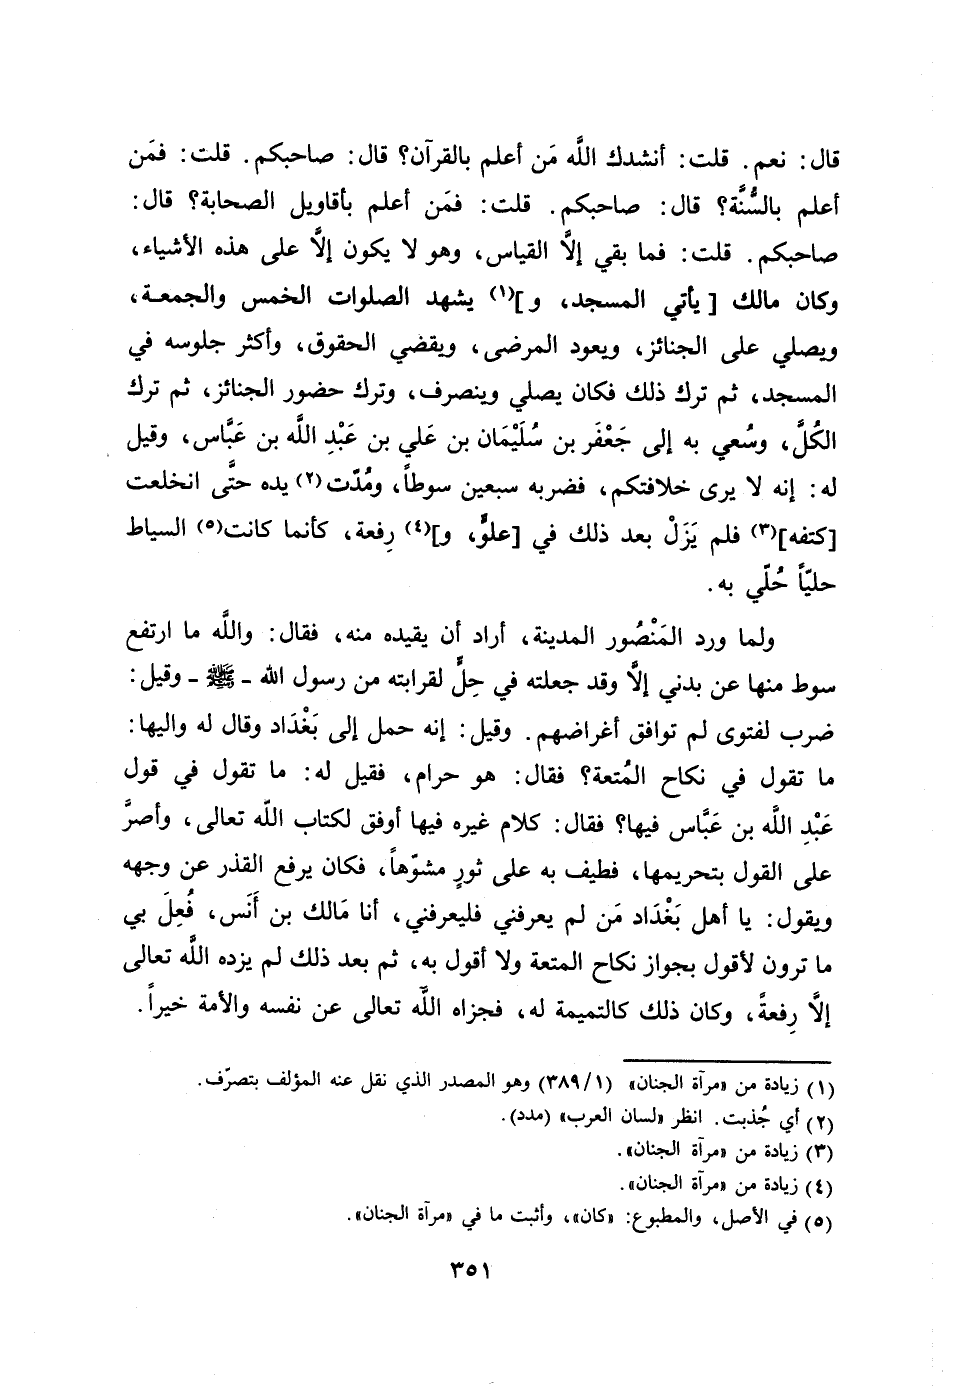 قال: نعم. قلت: أنشدك اللَّه مَن أعلم بالقرآن؟ قال: صاحبكم. قلت: فمَن
أعلم بالسُّنَّة؟ قال: صاحبكم. قلت: فمَن أعلم بأقاويل الصحابة؟ قال:
صاحبكم. قلت: فما بقي إلَّا القياس، وهو لا يكون إلَّا على هذه الأشياء،
وكان مالك [يأتي المسجد، و](١) يشهد الصلوات الخمس والجمعة،
ويصلي على الجنائز، ويعود المرضى، ويقضي الحقوق، وأكثر جلوسه في
المسجد، ثم ترك ذلك فكان يصلي وينصرف، وترك حضور الجنائز، ثم ترك
الكُلَّ، وسُعي به إلى جَعْفَر بن سُلَيْمَان بن عَلي بن عَبْدِ اللَّه بن عَبَّاس، وقيل
له: إنه لا يرى خلافتكم، فضربه سبعين سوطاً، ومُدّت(٢) يده حتَّى انخلعت
[كتفه](٣) فلم يَزَلْ بعد ذلك في [علوٍّ، و](٤) رِفعة، كأنما كانت(٥) السياط
حليّاً حُلّي به.
ولما ورد المَنْصُور المدينة، أراد أن يقيده منه، فقال: واللَّه ما ارتفع
سوط منها عن بدني إلَّا وقد جعلته في حِلٍّ لقرابته من رسول الله - ﷺ - وقيل:
ضرب لفتوى لم توافق أغراضهم. وقيل: إنه حمل إلى بَغْدَاد وقال له واليها:
ما تقول في نكاح المُتعة؟ فقال: هو حرام، فقيل له: ما تقول في قول
عَبْدِ اللَّه بن عَبَّاس فيها؟ فقال: كلام غيره فيها أوفق لكتاب اللّه تعالى، وأصرَّ
على القول بتحريمها، فطيف به على ثورٍ مشوّهاً، فكان يرفع القذر عن وجهه
ويقول: يا أهل بَغْدَاد مَن لم يعرفني فليعرفني، أنا مَالك بن أَنَس، فُعِلَ بي
ما ترون لأقول بجواز نكاح المتعة ولا أقول به، ثم بعد ذلك لم يزده اللَّه تعالى
إلَّا رِفعةً، وكان ذلك كالتميمة له، فجزاه اللَّه تعالى عن نفسه والأمة خيراً.
(١) زيادة من «مرآة الجنان» (٣٨٩/١) وهو المصدر الذي نقل عنه المؤلف بتصرّف.
(٢) أي جُذبت. انظر «لسان العرب» (مدد).
(٣) زيادة من «مرآة الجنان».
(٤) زيادة من «مرآة الجنان».
(٥) في الأصل، والمطبوع: «كان»، وأثبت ما في «مرآة الجنان».
٣٥١